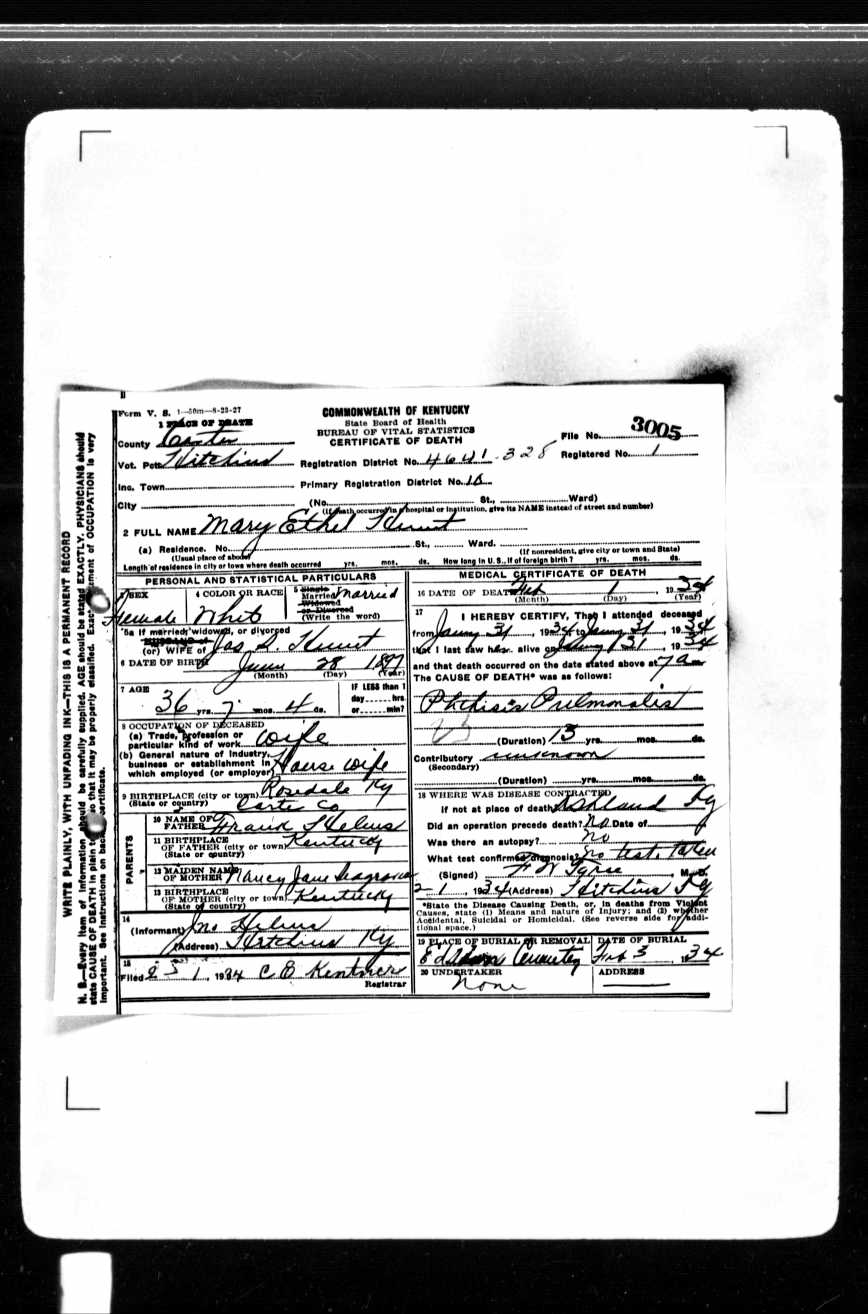 Form V. S. 1—50m—8-23-27
COMMONWEALTH OF KENTUCKY
State Board of Health
BUREAU OF VITAL STATISTICS
CERTIFICATE OF DEATH
1 PLACE OF DEATH
County Carter
Vot. Pct. Hitchins
Inc. Town
City
Registration District No. 4641-328
Primary Registration District No.
File No. 3005
Registered No. 1
(No. St., Ward)
(If death occurred in a hospital or institution, give its NAME instead of street and number)
2 FULL NAME Mary Ethel Hunt
(a) Residence. No. St., Ward.
(Usual place of abode) (If nonresident, give city or town and State)
Length of residence in city or town where death occurred yrs. mos. ds. How long in U. S., if of foreign birth? yrs. mos. ds.
PERSONAL AND STATISTICAL PARTICULARS
3 SEX
Female
4 COLOR OR RACE
White
5 Single
Married
Widowed
or Divorced
(Write the word)
Married
5a If married, widowed, or divorced
HUSBAND of
(or) WIFE of Jas D. Hunt
6 DATE OF BIRTH June 28 1897
(Month) (Day) (Year)
7 AGE
36 yrs. 7 mos. 4 ds.
IF LESS than 1
day hrs.
or min?
8 OCCUPATION OF DECEASED
(a) Trade, profession or
particular kind of work wife
(b) General nature of industry,
business or establishment in
which employed (or employer) House wife
9 BIRTHPLACE (city or town) Rosedale Ky
(State or country) Carter Co
PARENTS
10 NAME OF
FATHER Frank Helms
11 BIRTHPLACE
OF FATHER (city or town) Kentucky
(State or country)
12 MAIDEN NAME
OF MOTHER Nancy Jane Seagraves
13 BIRTHPLACE
OF MOTHER (city or town) Kentucky
(State or country)
14
(Informant) Jno Helms
(Address) Hitchins Ky
15
Filed 1, 1934 C B Kentner
Registrar
MEDICAL CERTIFICATE OF DEATH
16 DATE OF DEATH Feb, 1934
(Month) (Day) (Year)
17
I HEREBY CERTIFY, That I attended deceased
from 31, 1934 to 31, 1934
that I last saw her alive on 31, 1934
and that death occurred on the date stated above at 7 a m
The CAUSE OF DEATH* was as follows:
Phthisis Pulmonalis
(Duration) 13 yrs. mos. ds.
Contributory unknown
(Secondary)
(Duration) yrs. mos. ds.
18 WHERE WAS DISEASE CONTRACTED
if not at place of death? Ashland Ky
Did an operation precede death? No Date of
Was there an autopsy? no
What test confirmed diagnosis? no test taken
(Signed) M. D.
2 1, 1934 (Address) Hitchins Ky
*State the Disease Causing Death, or, in deaths from Violent
Causes, state (1) Means and nature of Injury; and (2) whether
Accidental, Suicidal or Homicidal. (See reverse side for addi-
tional space.)
19 PLACE OF BURIAL OR REMOVAL
Cemetery
DATE OF BURIAL
Feb 3, 1934
20 UNDERTAKER
None
ADDRESS
WRITE PLAINLY, WITH UNFADING INK—THIS IS A PERMANENT RECORD
N. B.—Every item of information should be carefully supplied. AGE should be stated EXACTLY. PHYSICIANS should
state CAUSE OF DEATH in plain so that it may be properly classified. Exact statement of OCCUPATION is very
important. See instructions on back certificate.